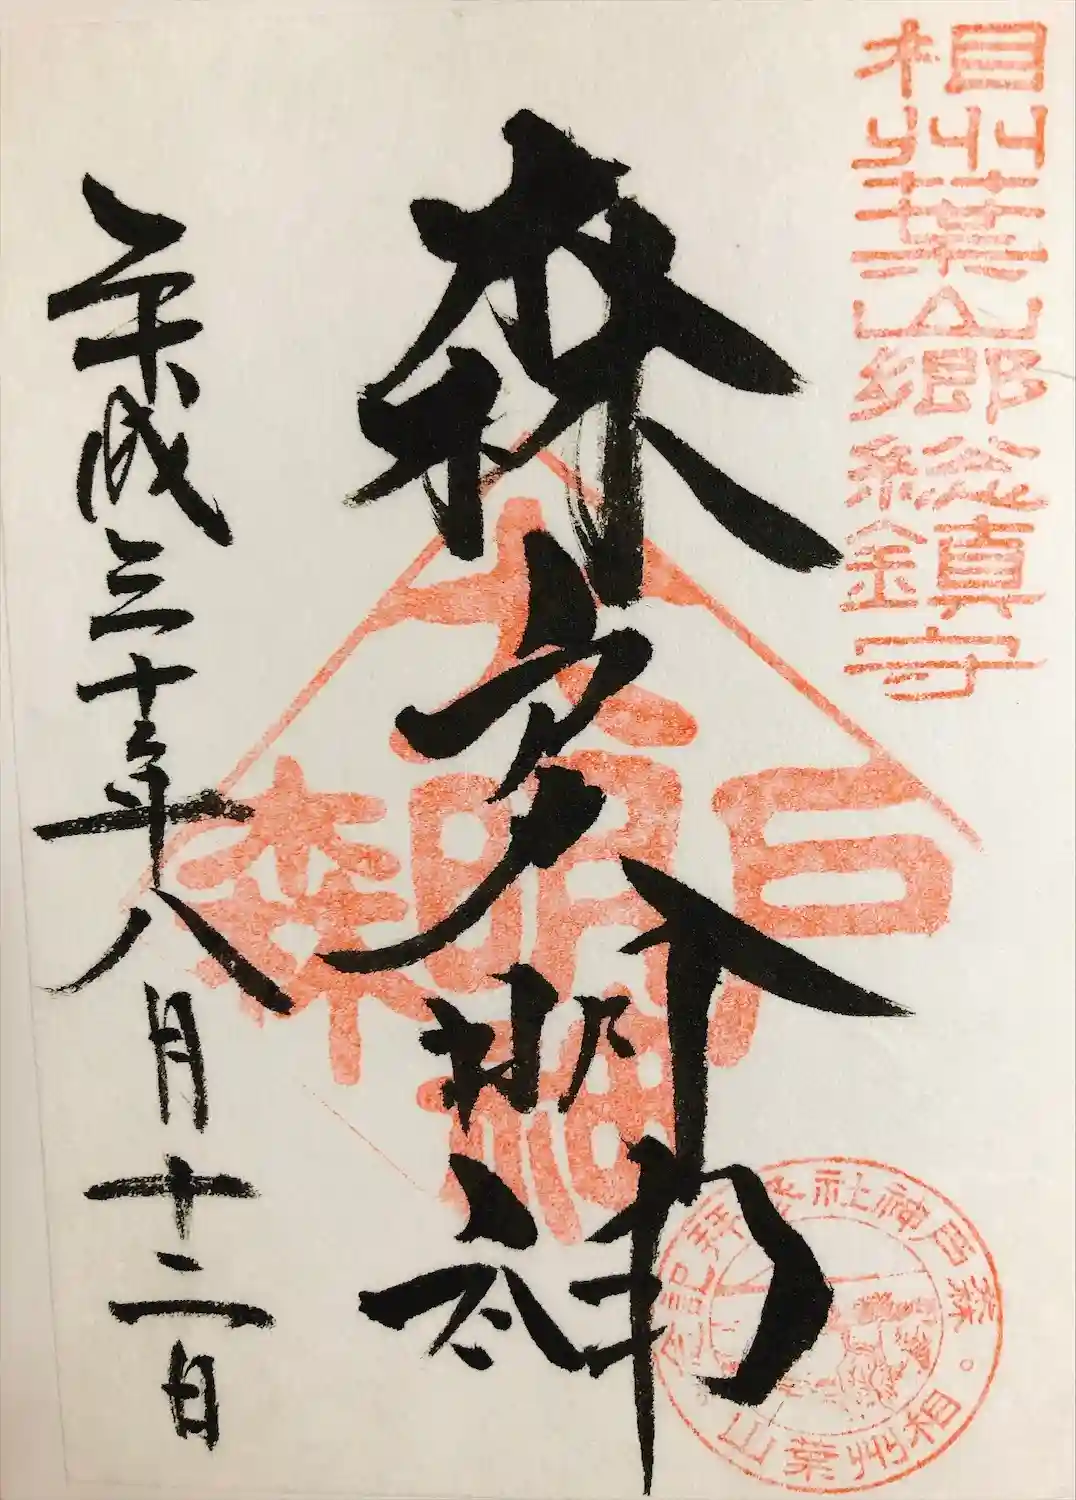 相州葉山郷総鎮守
森戸大明神
森戸大明神
森戸神社参拝記念
相州葉山
平成三十年八月十二日